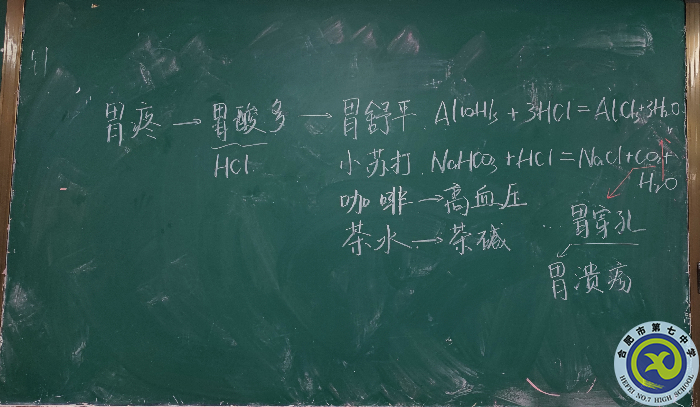 胃疼→胃酸多→胃舒平 Al(OH)₃+3HCl=AlCl₃+3H₂O
HCl
小苏打 NaHCO₃+HCl=NaCl+CO₂↑+H₂O
咖啡→高血压
胃穿孔
茶水→茶碱
胃溃疡
合肥市第七中学
HEFEI NO.7 HIGH SCHOOL